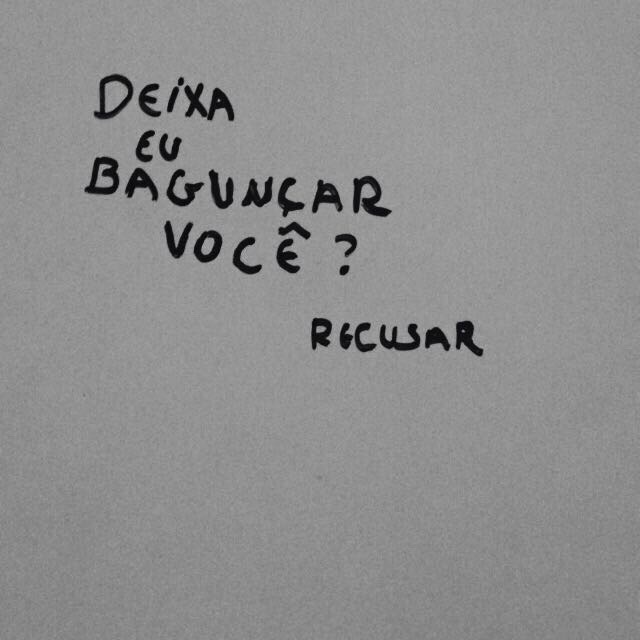 DEiXA
EU
BAGUNÇAR
VOCÊ ?
RECUSAR